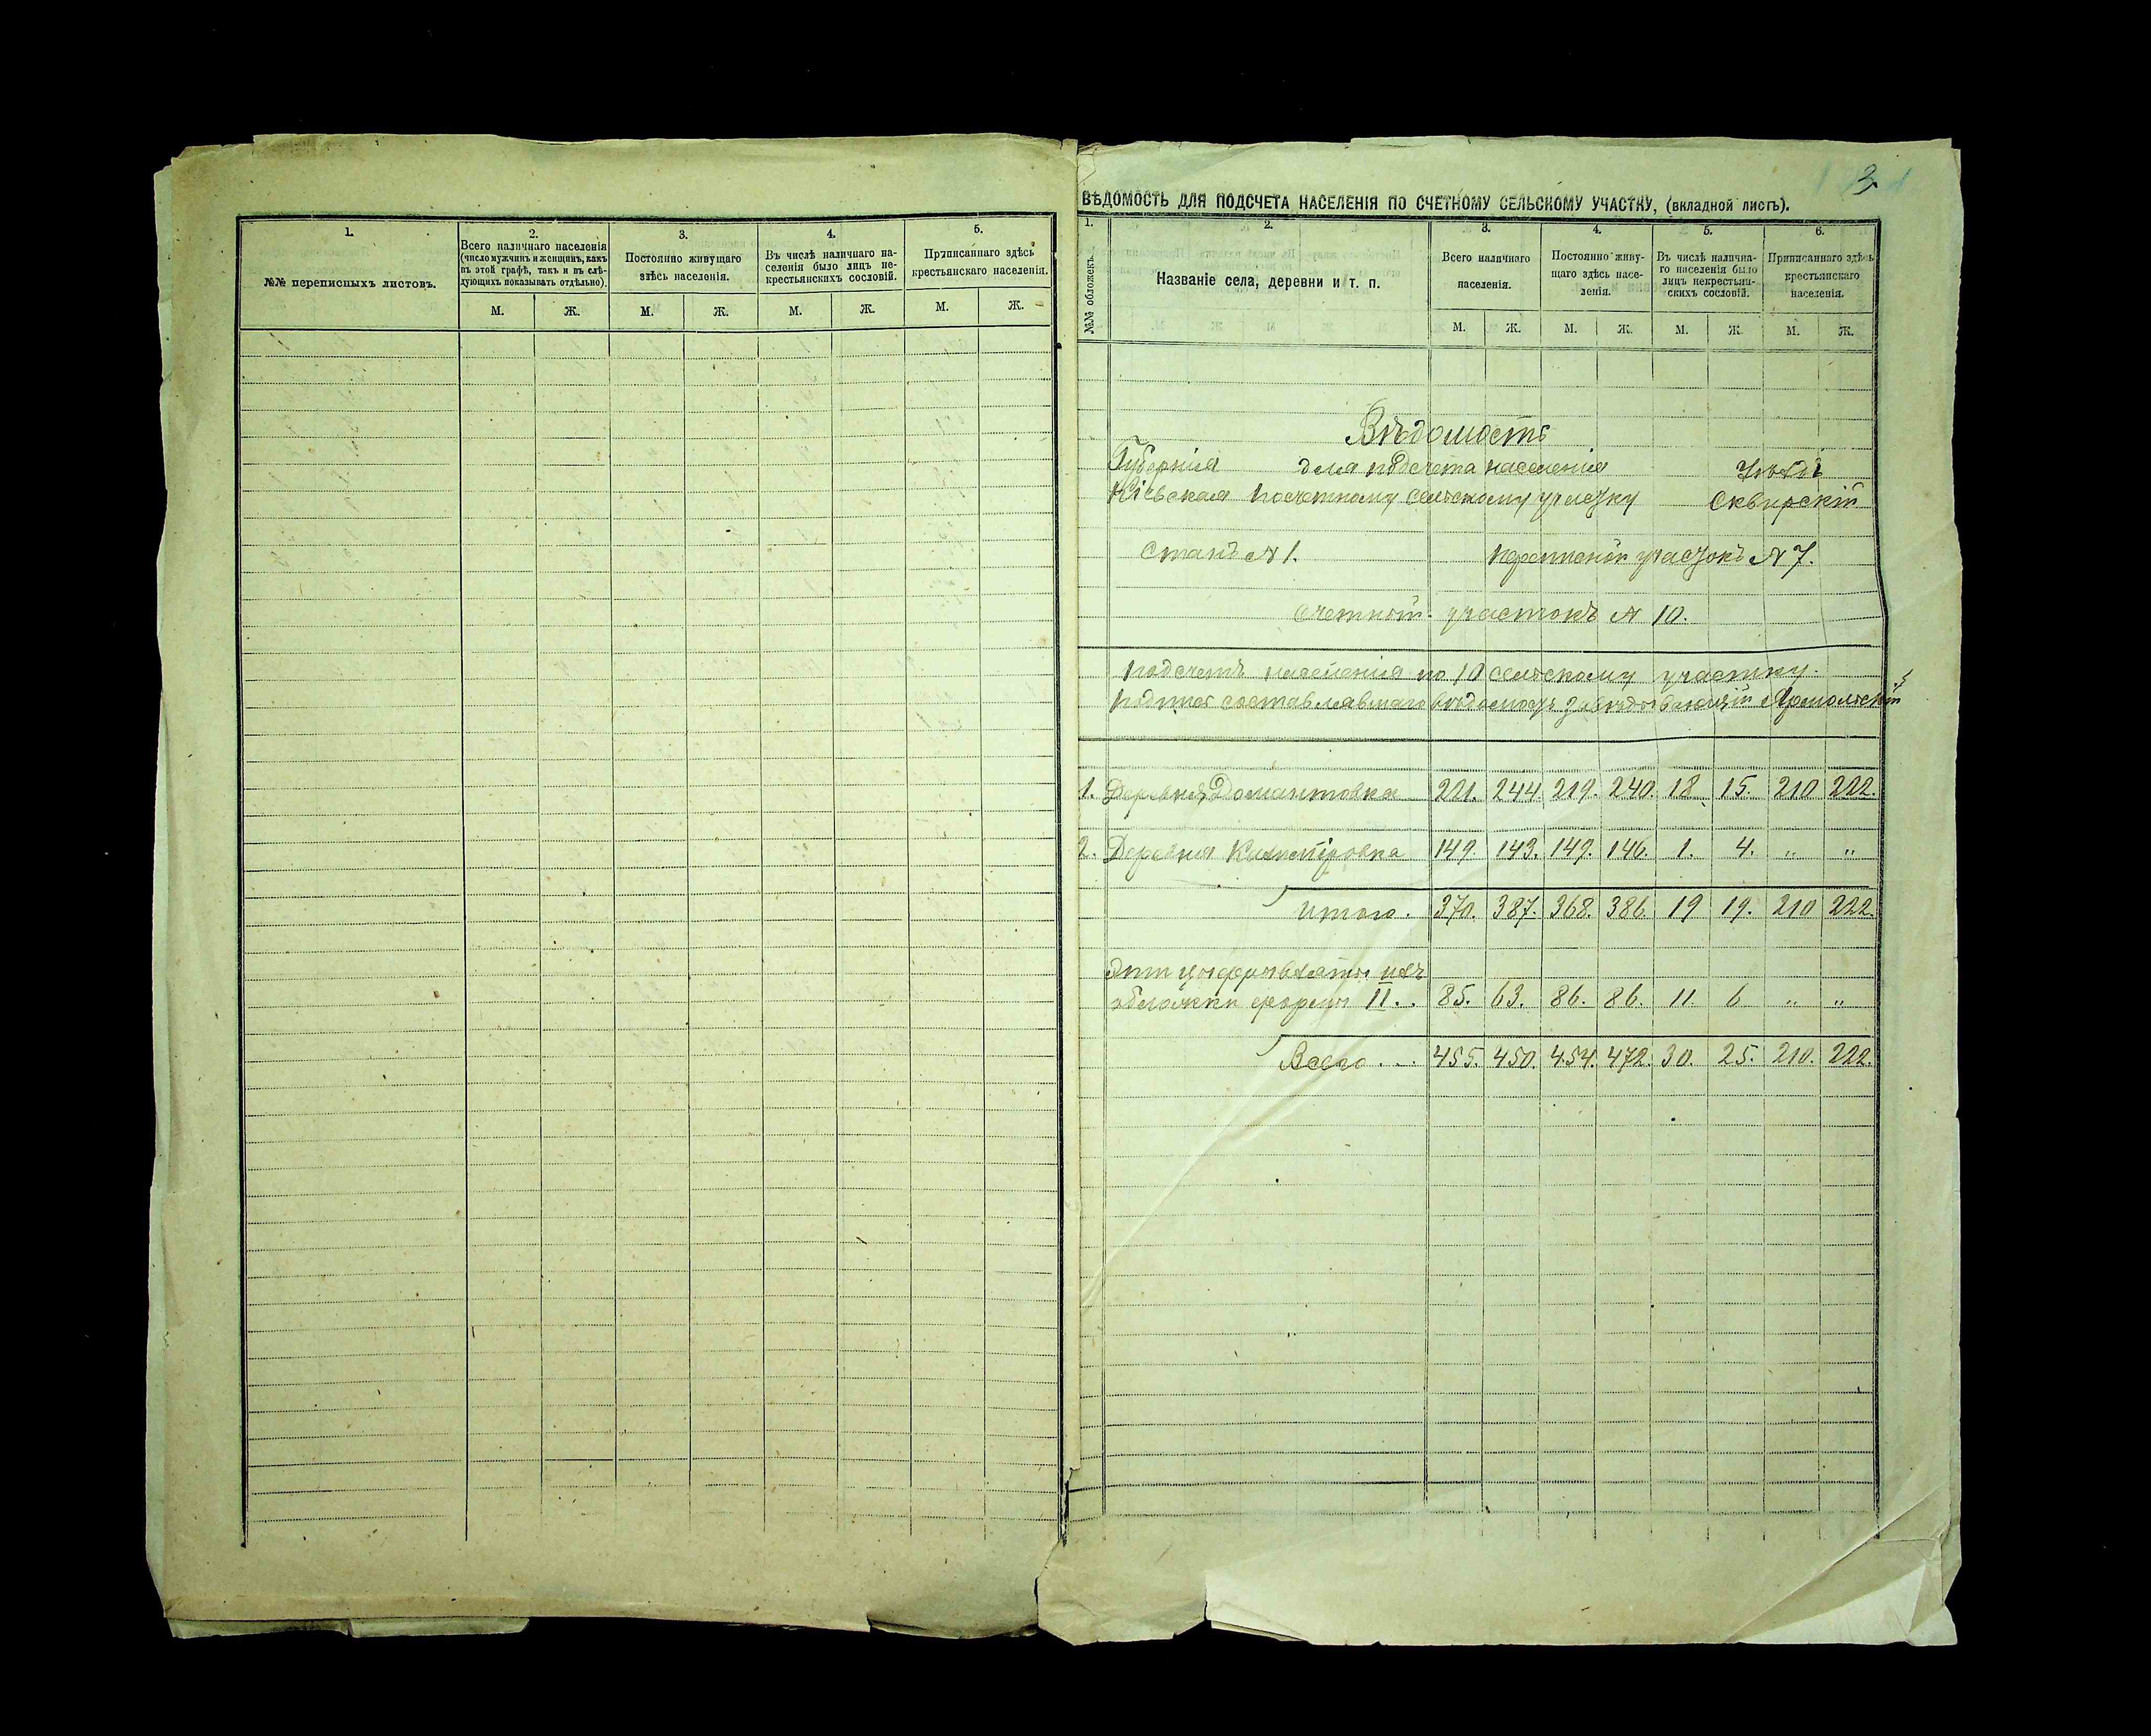 3
1.
2.
3.
4.
5.
№№ переписныхъ листовъ.
Всего наличнаго населенія (число мужчинъ и женщинъ, какъ въ этой графѣ, такъ и въ слѣдующихъ показывать отдѣльно).
Постоянно живущаго здѣсь населенія.
Въ числѣ наличнаго населенія было лицъ не-крестьянскихъ сословій.
Приписаннаго здѣсь крестьянскаго населенія.
М. Ж. М. Ж. М. Ж. М. Ж.
ВѢДОМОСТЬ ДЛЯ ПОДСЧЕТА НАСЕЛЕНІЯ ПО СЧЕТНОМУ СЕЛЬСКОМУ УЧАСТКУ, (вкладной листъ).
1. 2. 3. 4. 5. 6.
№№ обложекъ.
Названіе села, деревни и т. п.
Всего наличнаго населенія.
Постоянно живущаго здѣсь населенія.
Въ числѣ наличнаго населенія было лицъ некрестьянскихъ сословій.
Приписаннаго здѣсь крестьянскаго населенія.
М. Ж. М. Ж. М. Ж. М. Ж.
Вѣдомость
Губернія для подсчета населенія Уѣздъ
Кіевская по счетному сельскому участку Сквирскій
Станъ № 1. участокъ № 7.
Счетный участокъ № 10.
Подсчетъ населенія по 10 сельскому участку.
составлявшаго вѣдомость завѣдывающій
1. Деревня Домантовка 221. 244. 219. 240. 18. 15. 210 222.
2. Деревня 149. 143. 149. 146. 1. 4. „ „
Итого. 370. 387. 368. 386. 19 19. 210 222.
обложки формы II. . 85. 63. 86. 86. 11. 6 „ „
Всего . . . 455. 450. 454. 472. 30. 25. 210. 222.